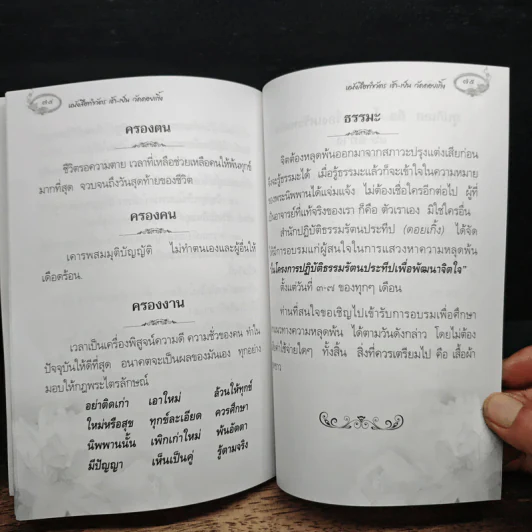 ๗๔
หนังสือทำวัตร เช้า-เย็น วัดดอยเกิ้ง
ครองตน
ชีวิตรอความตาย เวลาที่เหลือช่วยเหลือคนให้พ้นทุกข์
มากที่สุด จวบจนถึงวันสุดท้ายของชีวิต
ครองคน
เคารพสมมุติบัญญัติ ไม่ทำตนเองและผู้อื่นให้
เดือดร้อน
ครองงาน
เวลาเป็นเครื่องพิสูจน์ความดี ความชั่วของคน ทำใน
ปัจจุบันให้ดีที่สุด อนาคตจะเป็นผลของมันเอง ทุกอย่าง
มอบให้กฎพระไตรลักษณ์
อย่าติดเก่า เอาใหม่ ล้วนให้ทุกข์
ใหม่หรือสุข ทุกข์ละเอียด ควรศึกษา
นิพพานนั้น เพิกเก่าใหม่ พ้นอัตตา
มีปัญญา เห็นเป็นคู่ รู้ตามจริง
หนังสือทำวัตร เช้า-เย็น วัดดอยเกิ้ง
๗๕
ธรรมะ
จิตต้องหลุดพ้นออกมาจากสภาวะปรุงแต่งเสียก่อน
จึงจะรู้ธรรมะได้ เมื่อรู้ธรรมะแล้วก็จะเข้าใจในความหมาย
พระนิพพานได้แจ่มแจ้ง ไม่ต้องเชื่อใครอีกต่อไป ผู้ที่
อาจารย์ที่แท้จริงของเรา ก็คือ ตัวเราเอง มิใช่ใครอื่น
สำนักปฏิบัติธรรมรัตนประทีป (ดอยเกิ้ง) ได้จัด
การอบรมแก่ผู้สนใจในการแสวงหาความหลุดพ้น
โครงการปฏิบัติธรรมรัตนประทีปเพื่อพัฒนาจิตใจ"
ตั้งแต่วันที่ ๓-๗ ของทุกๆ เดือน
ท่านที่สนใจขอเชิญไปเข้ารับการอบรมเพื่อศึกษา
ทางความหลุดพ้น ได้ตามวันดังกล่าว โดยไม่ต้อง
ค่าใช้จ่ายใดๆ ทั้งสิ้น สิ่งที่ควรเตรียมไป คือ เสื้อผ้า
ขาว